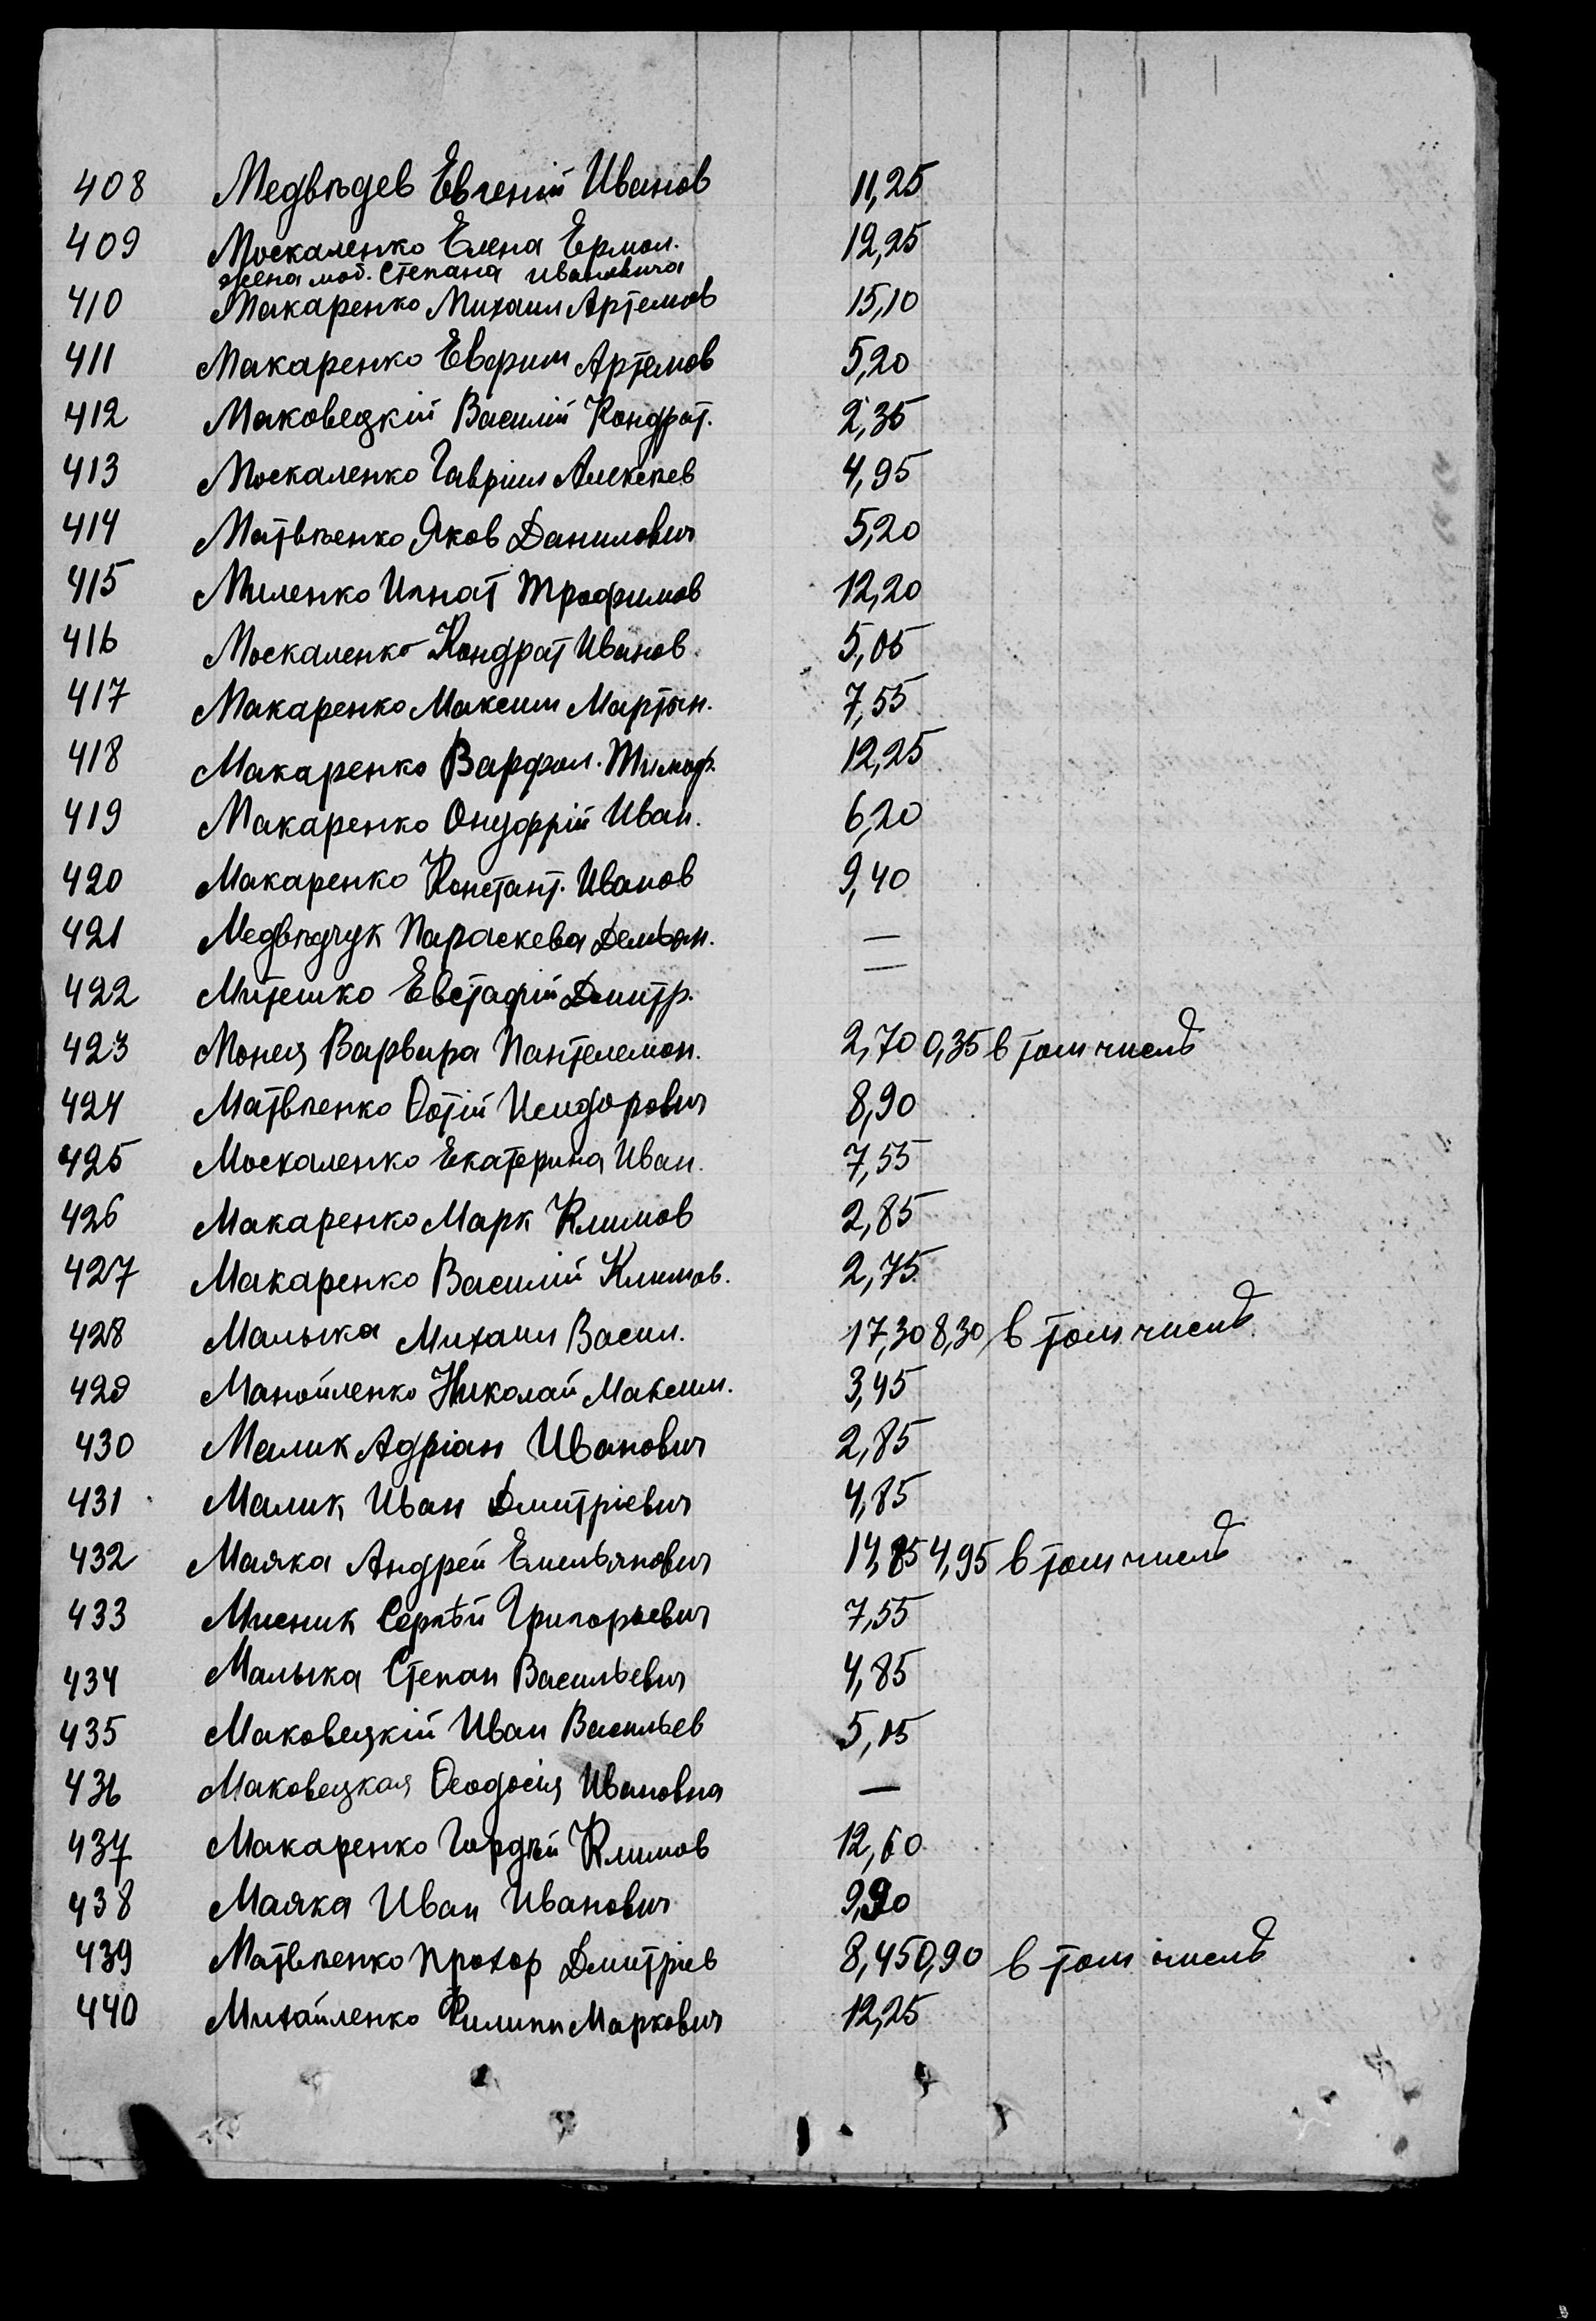 408 Медвѣдев Евгеній Иванов 11,25
409 Москаленко Елена Ермол. 12,25
жена моб. Степана Ивановича
410 Макаренко Михаил Артемов 15,10
411 Макаренко Евфрим Артемов 5,20
412 Маковецкій Василій Кондрат. 2,35
413 Москаленко Гавріил Алексѣев 4,95
414 Матвѣенко Яков Данилович 5,20
415 Миленко Игнат Трофимов 12,20
416 Москаленко Кондрат Иванов. 5,05
417 Макаренко Максим Мартын. 7,55
418 Макаренко Варфол. Тимоф. 12,25
419 Макаренко Онуфрій Иван. 6,20
420 Макаренко Констант. Иванов 9,40
421 Медвѣдчук Параскева Демьян. —
422 Митешко Евстафій Дмитр. —
423 Монея Варвара Пантелемон. 2,70 0,35 в том числѣ
424 Матвѣенко Ѳотій Исидорович 8,90
425 Москаленко Екатерина Иван. 7,55
426 Макаренко Марк Климов 2,85
427 Макаренко Василій Климов. 2,75
428 Малыка Михаил Васил. 17,30 8,30 в том числѣ
429 Манойленко Николай Максим. 3,45
430 Малик Адріан Иванович 2,85
431 Малик Иван Дмитріевич 4,85
432 Маяка Андрей Емельянович 14,85 4,95 в том числѣ
433 Мисник Сергѣй Григорьевич 7,55
434 Малыка Степан Васильевич 4,85
435 Маковецкій Иван Васильев 5,05
436 Маковецкая Ѳеодосія Ивановна —
437 Макаренко Гордѣй Климов 12,60
438 Маяка Иван Иванович 9,90
439 Матвѣенко Прохор Дмитріев 8,45 0,90 в том числѣ
440 Михайленко Филипп Маркович 12,25